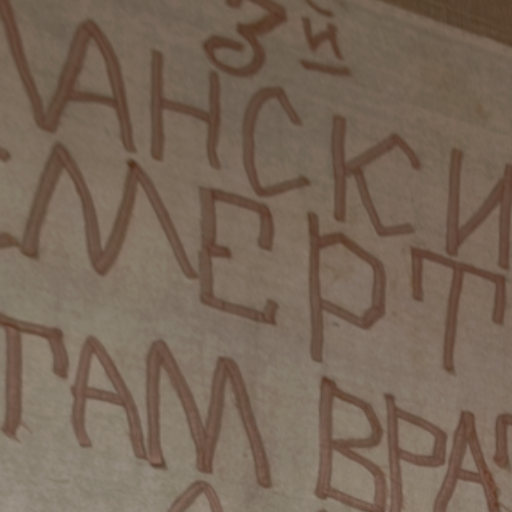 3й
АНСКИ
МЕРТ
ТАМ ВРАГ